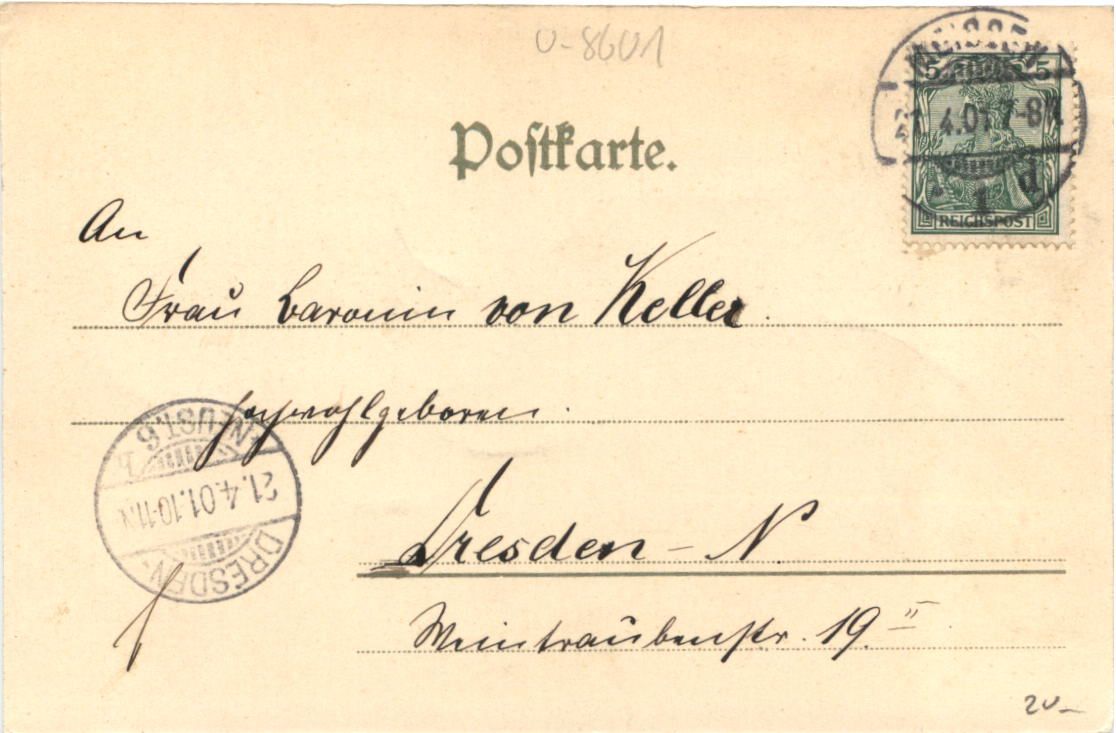 U-8601
MEISSEN
5 5
21.4.01.7-8N
1 d
REICHSPOST
Postkarte.
An
Frau Baronin von Keller.
Hochwohlgeboren.
DRESDEN-NEUST. 6
b
21.4.01.10-11.N
Dresden - N
Weintraubenstr. 19 II
20-